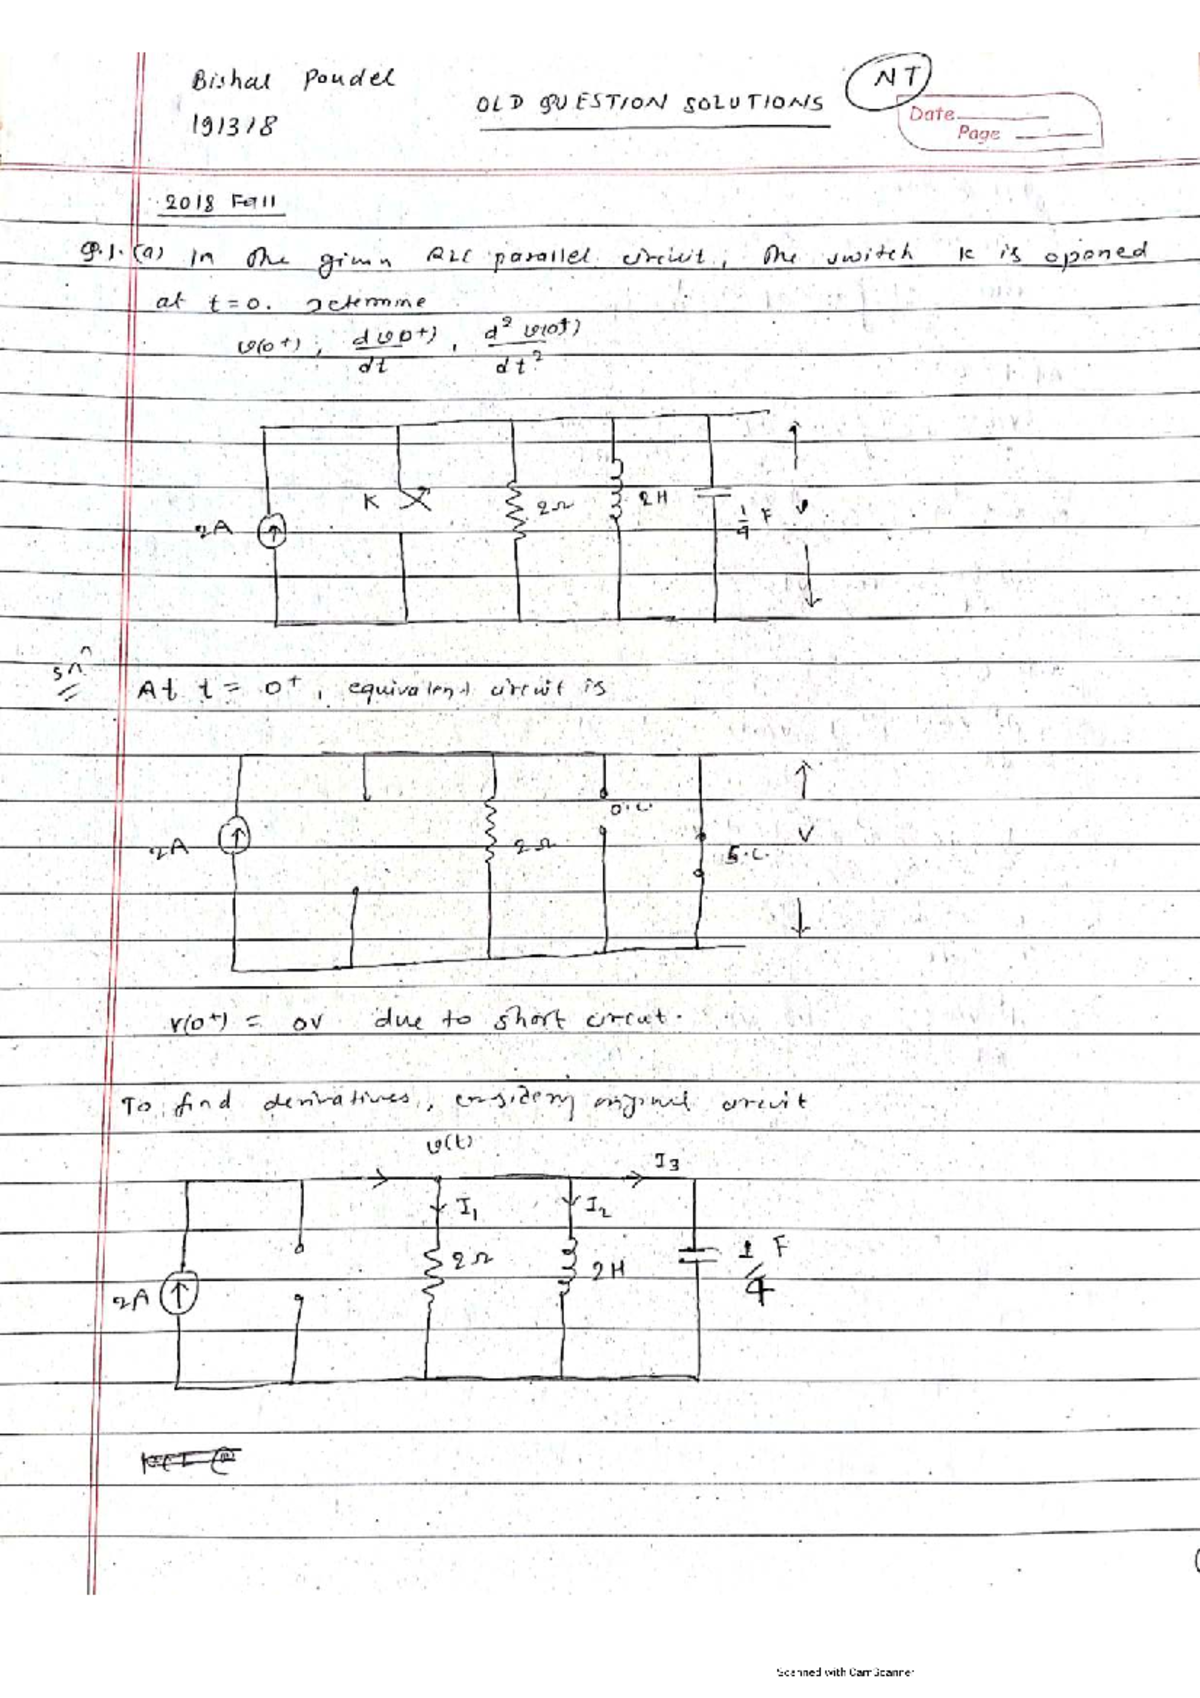 Bishal Poudel
NT
OLD QUESTION SOLUTIONS
191318
Date
Page
2018 Fall
Q.1. (a) In the given RLC parallel circuit, the switch K is opened
at t=0. Determine
v(0+), dv(0+)/dt, d²v(0+)/dt²
2A
K
2Ω
2H
1/4 F
v
Sn
At t = 0+, equivalent circuit is
2A
2Ω
O.C.
S.C.
V
v(0+) = 0V due to short circut.
To find derivatives, considering original circuit
v(t)
I3
I1
I2
2A
2Ω
2H
1/4 F
Scanned with CamScanner